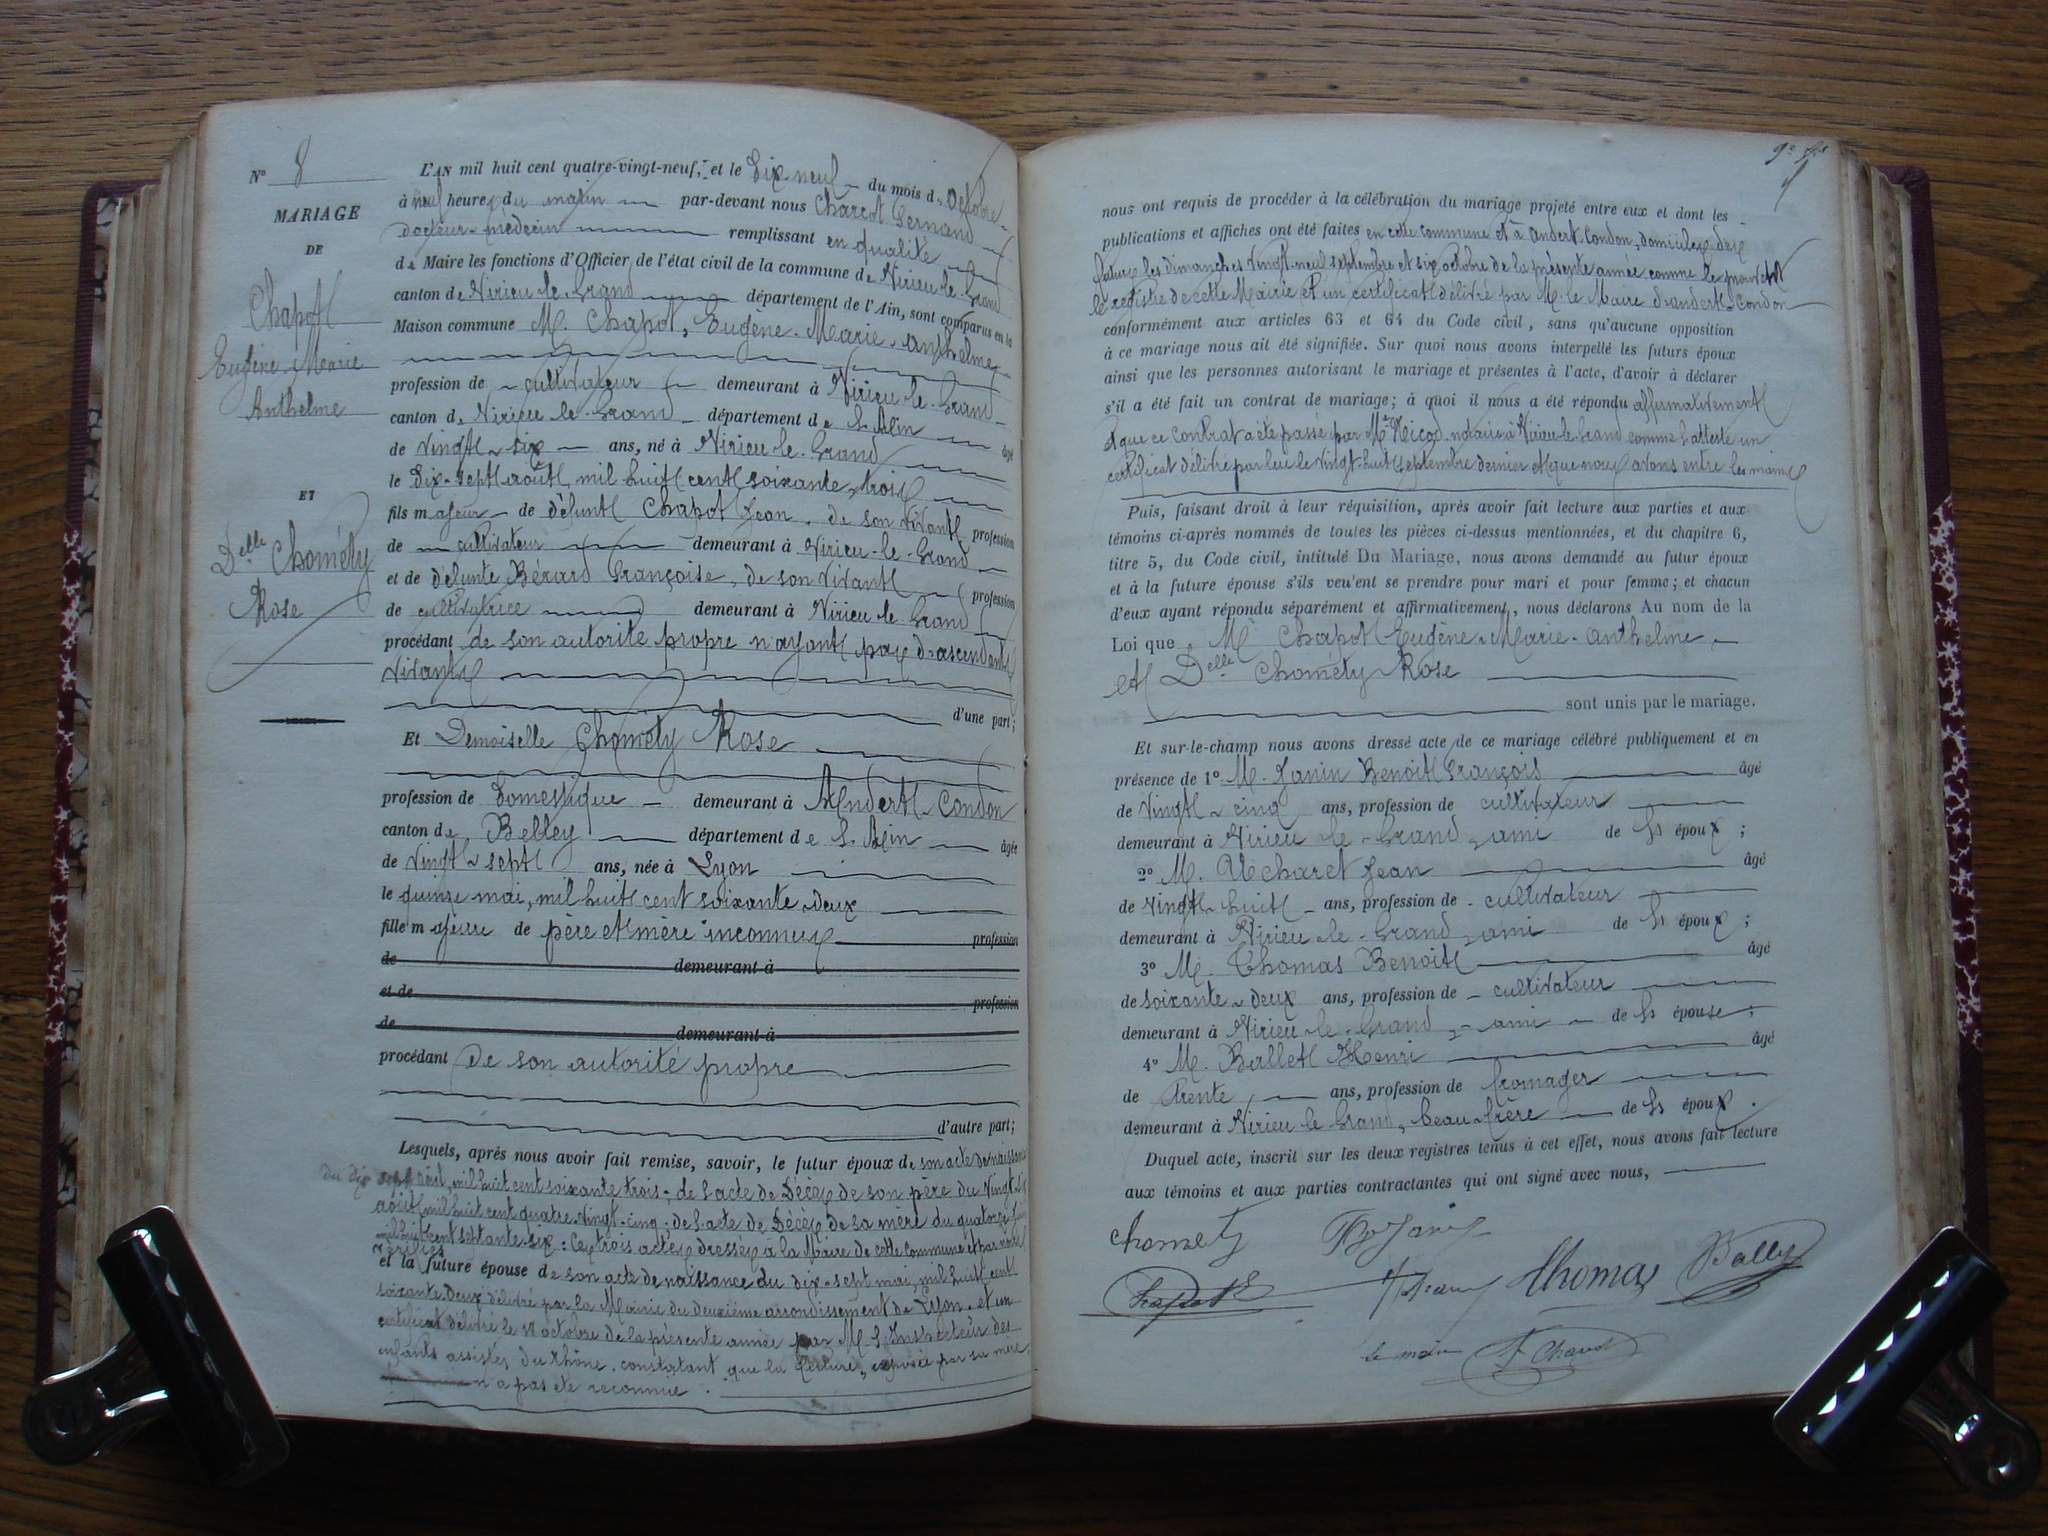 N° 8
MARIAGE
DE
Chapot
Eugène Marie
Anthelme
ET
Delle Chométy
Rose
L'AN mil huit cent quatre-vingt-neuf, et le Dix-neuf du mois d'Octobre
à neuf heures du matin par-devant nous Charcot Fernand
docteur-médecin remplissant en qualité
de Maire les fonctions d'Officier de l'état civil de la commune de Virieu-le-Grand
canton de Virieu-le-Grand département de l'Ain, sont comparus en la
Maison commune M. Chapot, Eugène-Marie-Anthelme
profession de cultivateur demeurant à Virieu-le-Grand
canton de Virieu-le-Grand département de l'Ain âgé
de vingt-six ans, né à Virieu-le-Grand
le Dix-sept août mil huit cent soixante-trois
fils majeur de défunt Chapot Jean, de son vivant profession
de cultivateur demeurant à Virieu-le-Grand
et de défunte Bérard Françoise, de son vivant profession
de cultivatrice demeurant à Virieu-le-Grand
procédant de son autorité propre n'ayant pas d'ascendants
vivants
d'une part;
Et Demoiselle Chométy Rose
profession de Domestique demeurant à Andert-Condon
canton de Belley département de l'Ain âgée
de vingt-sept ans, née à Lyon
le quinze mai, mil huit cent soixante-deux
fille majeure de père et mère inconnus profession
de demeurant à
et de profession
de demeurant à
procédant De son autorité propre
d'autre part;
Lesquels, après nous avoir fait remise, savoir, le futur époux de son acte de naissance
du dix sept août, mil huit cent soixante trois; de l'acte de Décès de son père du vingt
août mil huit cent quatre-vingt-cinq; de l'acte de Décès de sa mère du quatorze
mil huit cent septante-six: Ces trois actes dressés à la Mairie de cette commune et par nous
vérifiés
et la future épouse de son acte de naissance du dix-sept mai, mil huit cent
soixante-deux délivré par la Mairie du deuxième arrondissement de Lyon et un
certificat délivré le 11 octobre de la présente année par M. l'Inspecteur des
enfants assistés du Rhône, constatant que la future, exposée par sa mère
n'a pas été reconnue.
nous ont requis de procéder à la célébration du mariage projeté entre eux et dont les
publications et affiches ont été faites en cette commune et à Andert-Condon, domiciles des
futurs les dimanches vingt-neuf septembre et six octobre de la présente année comme le prouvent
le registre de cette Mairie et un certificat délivré par M. le Maire d'Andert-Condon
conformément aux articles 63 et 64 du Code civil, sans qu'aucune opposition
à ce mariage nous ait été signifiée. Sur quoi nous avons interpellé les futurs époux
ainsi que les personnes autorisant le mariage et présentes à l'acte, d'avoir à déclarer
s'il a été fait un contrat de mariage; à quoi il nous a été répondu affirmativement
et que ce contrat a été passé par Me Nicod notaire à Virieu-le-Grand comme l'atteste un
certificat délivré par lui le vingt-huit septembre dernier et que nous avons entre les mains
Puis, faisant droit à leur réquisition, après avoir fait lecture aux parties et aux
témoins ci-après nommés de toutes les pièces ci-dessus mentionnées, et du chapitre 6,
titre 5, du Code civil, intitulé Du Mariage, nous avons demandé au futur époux
et à la future épouse s'ils veu'ent se prendre pour mari et pour femme; et chacun
d'eux ayant répondu séparément et affirmativement, nous déclarons Au nom de la
Loi que Mr Chapot Eugène-Marie-Anthelme
et Delle Chométy Rose
sont unis par le mariage.
Et sur-le-champ nous avons dressé acte de ce mariage célébré publiquement et en
présence de 1° M. Janin Benoit François âgé
de vingt-cinq ans, profession de cultivateur
demeurant à Virieu-le-Grand, ami de ls époux;
2° M. Jean âgé
de vingt-huit ans, profession de cultivateur
demeurant à Virieu-le-Grand, ami de ls époux;
3° M. Thomas Benoit âgé
de soixante-deux ans, profession de cultivateur
demeurant à Virieu-le-Grand, ami de ls épouse;
4° M. Ballet Henri âgé
de Trente ans, profession de fromager
demeurant à Virieu-le-Grand, beau-frère de ls époux.
Duquel acte, inscrit sur les deux registres tenus à cet effet, nous avons fait lecture
aux témoins et aux parties contractantes qui ont signé avec nous,
Chomety
Chapot E Thomas Ballet
le maire